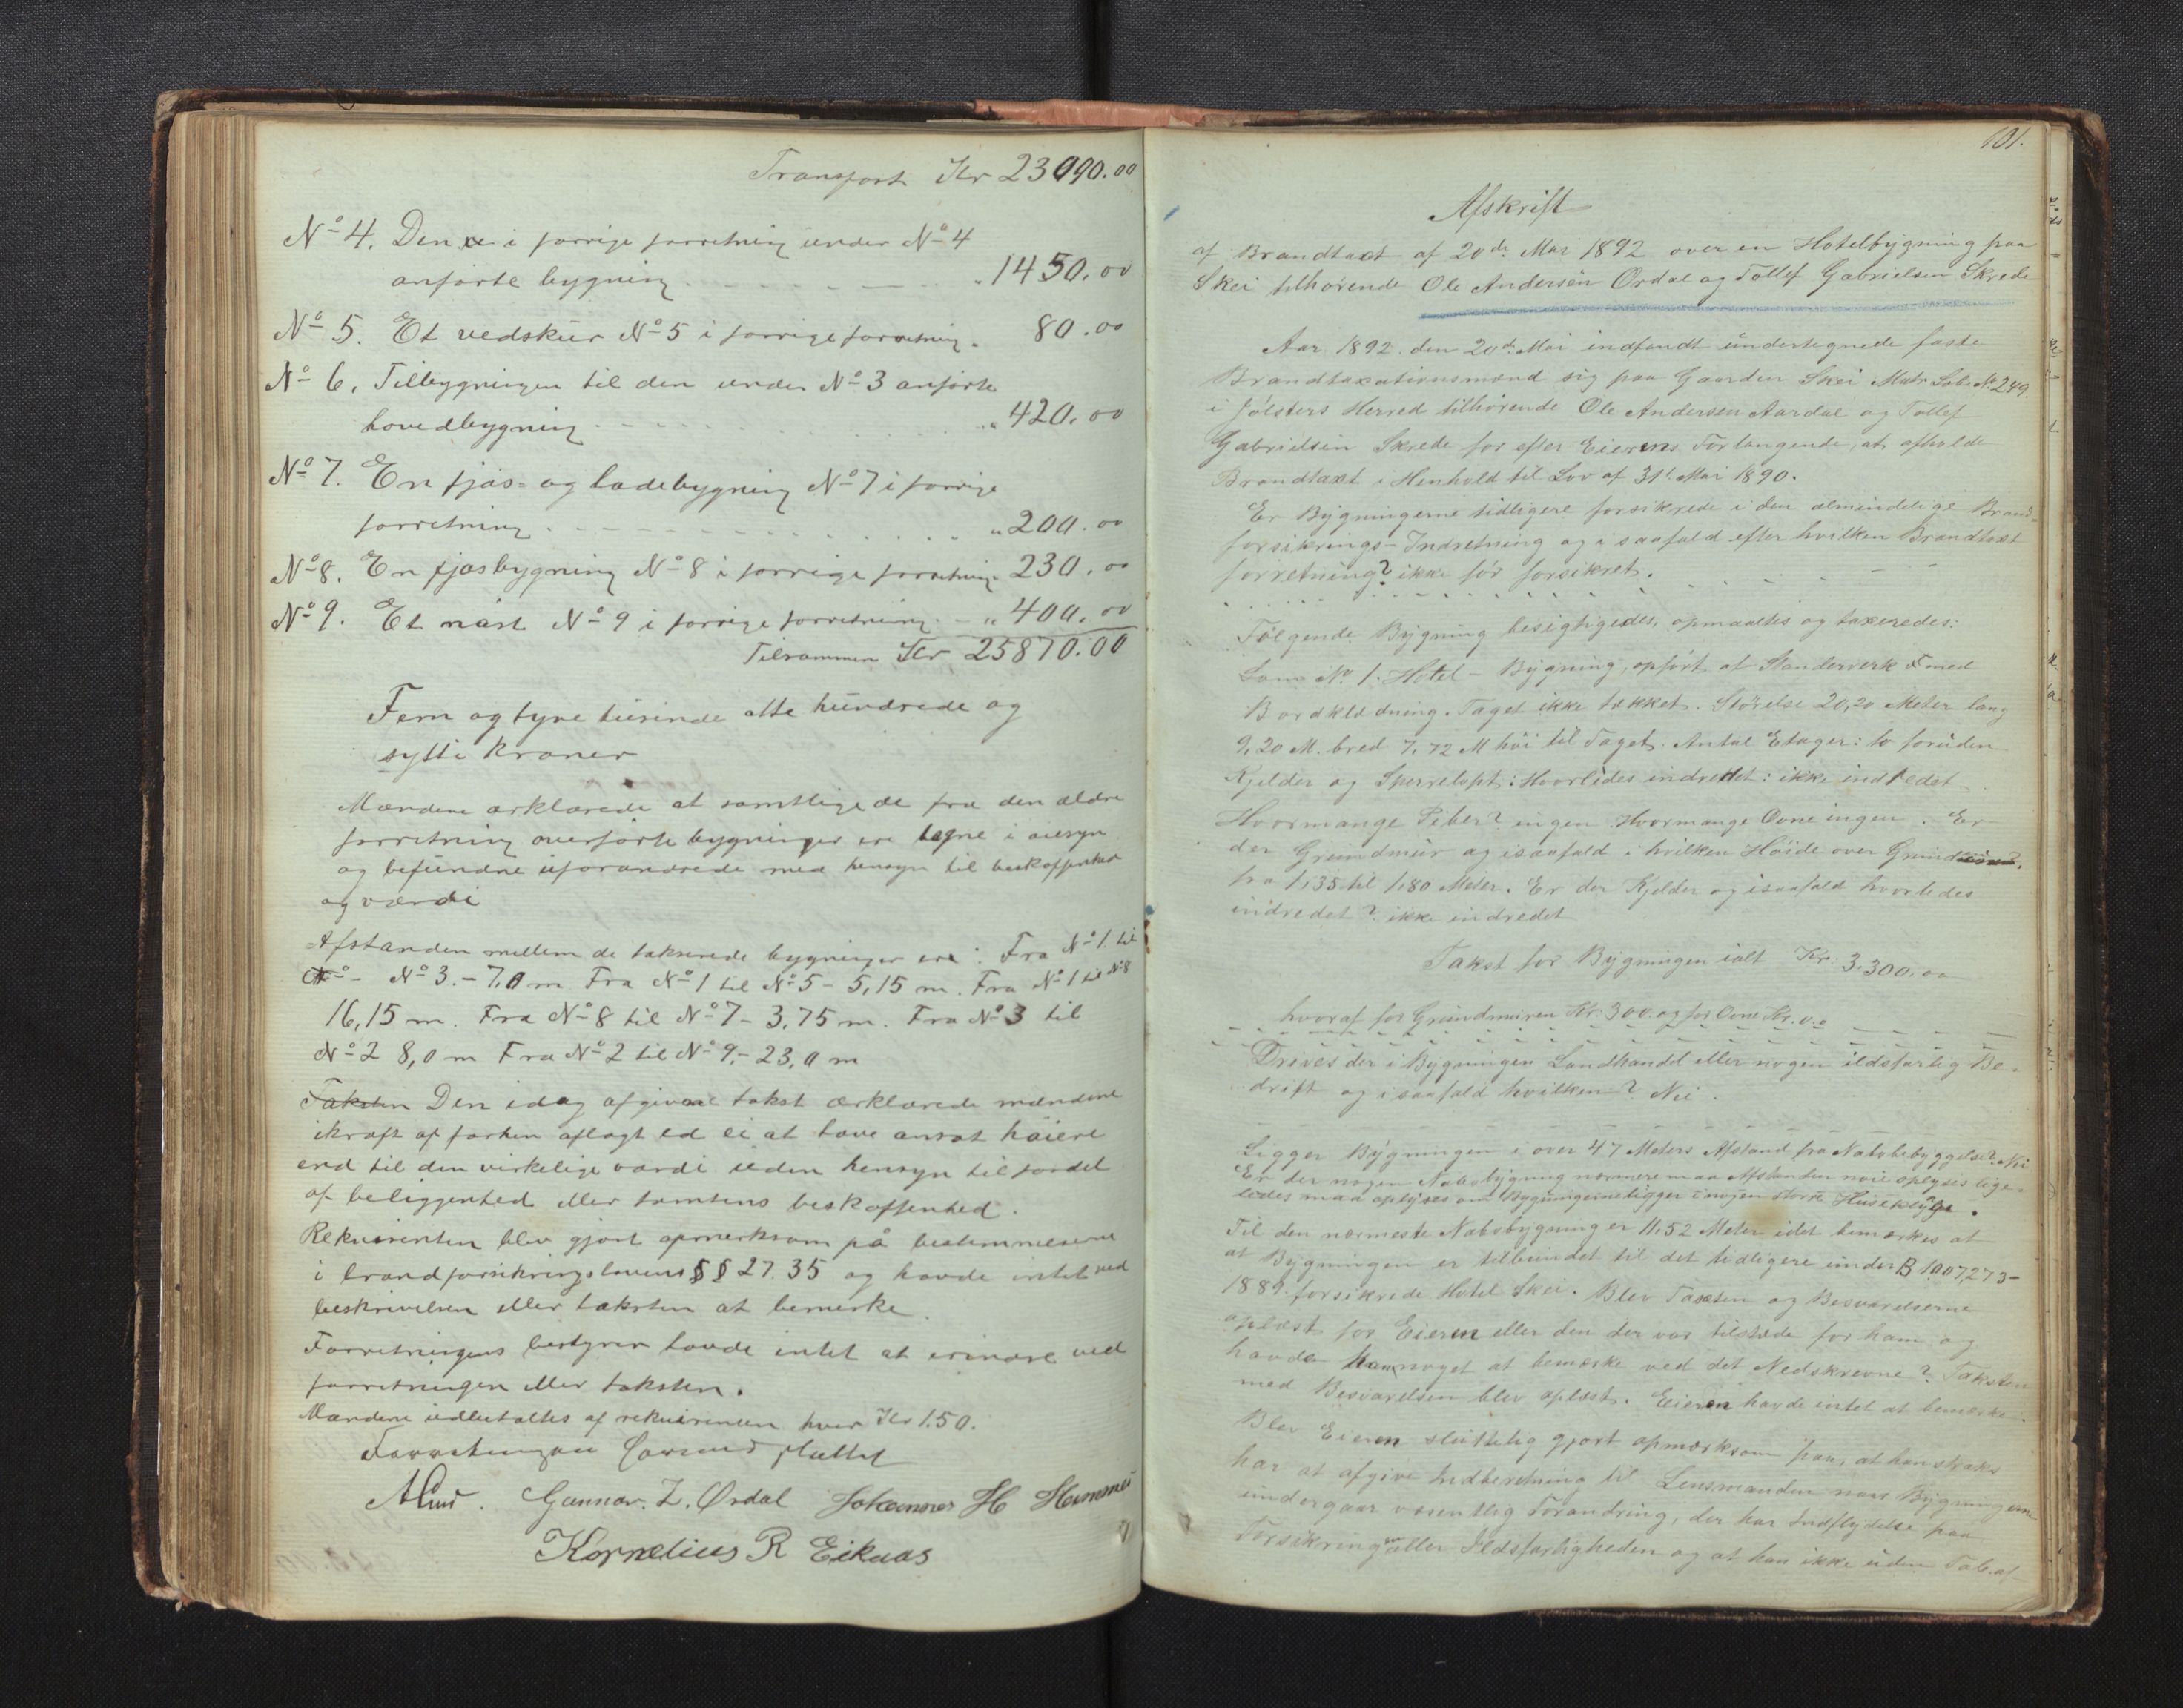 Transport Kr 23090.00
No 4. Den i forrige forretning under No 4
anførte bygning - - - - „ 1450.00
No 5. Et vedskur No 5 i forrige forretning „ 80.00
No 6. Tilbygningen til den under No 3 anførte
hovedbygning - - - - „ 420.00
No 7. En fjøs- og ladebygning No 7 i forrige
forretning - - - - „ 200.00
No 8. En fjøsbygning No 8 i forrige forretning 230.00
No 9. Et nøst No 9 i forrige forretning - „ 400.00
Tilsammen Kr 25870.00
Fem og tyve tusinde otte hundrede og
sytti kroner
Mændene erklærede at samtlige de fra den ældre
forretning overførte bygninger ere tagne i øiesyn
og befundne uforandrede med hensyn til beskaffenhed
og værdi
Afstanden mellem de takserede bygninger ere: Fra No 1 til
No 3. - 7,0 m Fra No 1 til No 5 - 5,15 m. Fra No 1 til No 8
16,15 m. Fra No 8 til No 7 - 3,75 m. Fra No 3 til
No 2 8,0 m Fra No 2 til No 9. - 23,0 m
Taksten Den idag afgivne takst erklærede mændene
ikraft af forhen aflagt ed ei at have ansat høiere
end til den virkelige værdi uden hensyn til fordel
af beliggenhed eller tomtens beskaffenhed.
Rekvirenten blev gjort opmerksom på bestemmelserne
i brandforsikringslovens §§ 27. 35 og havde intet ved
beskrivelsen eller taksten at bemerke.
Forretningens bestyrer havde intet at erindre ved
forretningen eller taksten.
Mændene udbetaltes af rekvirenten hver Kr 1.50.
Forretningen sluttet
Gunnar. L. Ørdal Johannes H
Kornelius R Eikaas
101.
Afskrift
af Brandtaxt af 20de Mai 1892 over en Hotelbygning paa
Skei tilhørende Ole Andersen Ordal og Tollef Gabrielsen Skrede
Aar 1892 den 20de Mai indfandt undertegnede faste
Brandtaxationsmænd sig paa Gaarden Skei Matr. Løb. No 249.
i Jølsters Herred tilhørende Ole Andersen Aardal og Tollef
Gabrielsen Skrede for efter Eierens Forlangende, at afholde
Brandtaxt i Henhold til Lov af 31te Mai 1890.
Er Bygningerne tidligere forsikrede i den almindelige Brand-
forsikrings-Indretning og i saafald efter hvilken Brandtaxt
forretning? ikke før forsikret.
Følgende Bygning besigtigedes, opmaaltes og taxeredes:
Som No 1. Hotel-Bygning, opført af Standerverk med
Bordklædning. Taget ikke tækket. Størelse 20,20 Meter lang
9,20 M. bred 7,72 M høi til Taget. Antal Etager: to foruden
Kjelder og Sperreloft: Hvorledes indrettet: ikke indredet
Hvormange Piber? ingen Hvormange Ovne ingen. Er
der Grundmur og isaafald i hvilken Høide over Grunden?
fra 1,35 til 1,80 Meter. Er der Kjelder og isaafald hvorledes
indredet? ikke indredet
Takst for Bygningen ialt Kr. 3.300.00
hvoraf for Grundmuren Kr. 300. og for Ovne Kr. 0.0
Drives der i Bygningen Landhandel eller nogen ildsfarlig Be-
drift og i saafald hvilken? Nei.
Ligger Bygningen i over 47 Meters Afstand fra Nabobebyggelse? Nei
Er der nogen Nabobygning nærmere maa Afstanden nøie oplyses lige-
ledes maa oplyses om Bygningerne ligger i nogen større Huseklynge.
Til den nærmeste Nabobygning er 11,52 Meter idet bemærkes at
at Bygningen er tilbundet til det tidligere under B 1007,273-
1889. forsikrede Hotel Skei. Blev Taxten og Besvarelserne
oplæst for Eieren eller den der var tilstede for ham og
havde han noget at bemærke ved det Nedskrevne? Taksten
med Besvarelsen blev oplæst. Eieren havde intet at bemærke.
Blev Eieren sluttelig gjort opmærksom paa, at han straks
har at afgive Indberetning til Lensmanden naar Bygningerne
undergaar væsentlig Forandring, der har Indflydelse paa
Forsikringen eller Ildsfarligheden og at han ikke uden Tab af